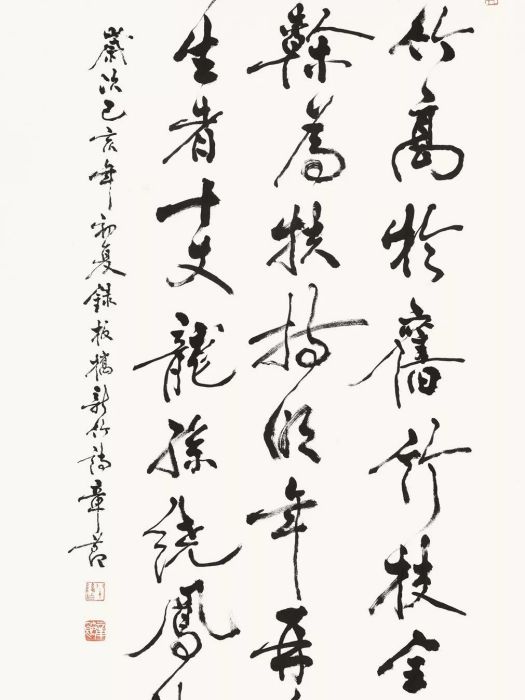 竹高於舊竹枝全
幹為扶持明年再
生者十丈龍孫繞鳳
歲次己亥年初夏錄板橋新竹詩章